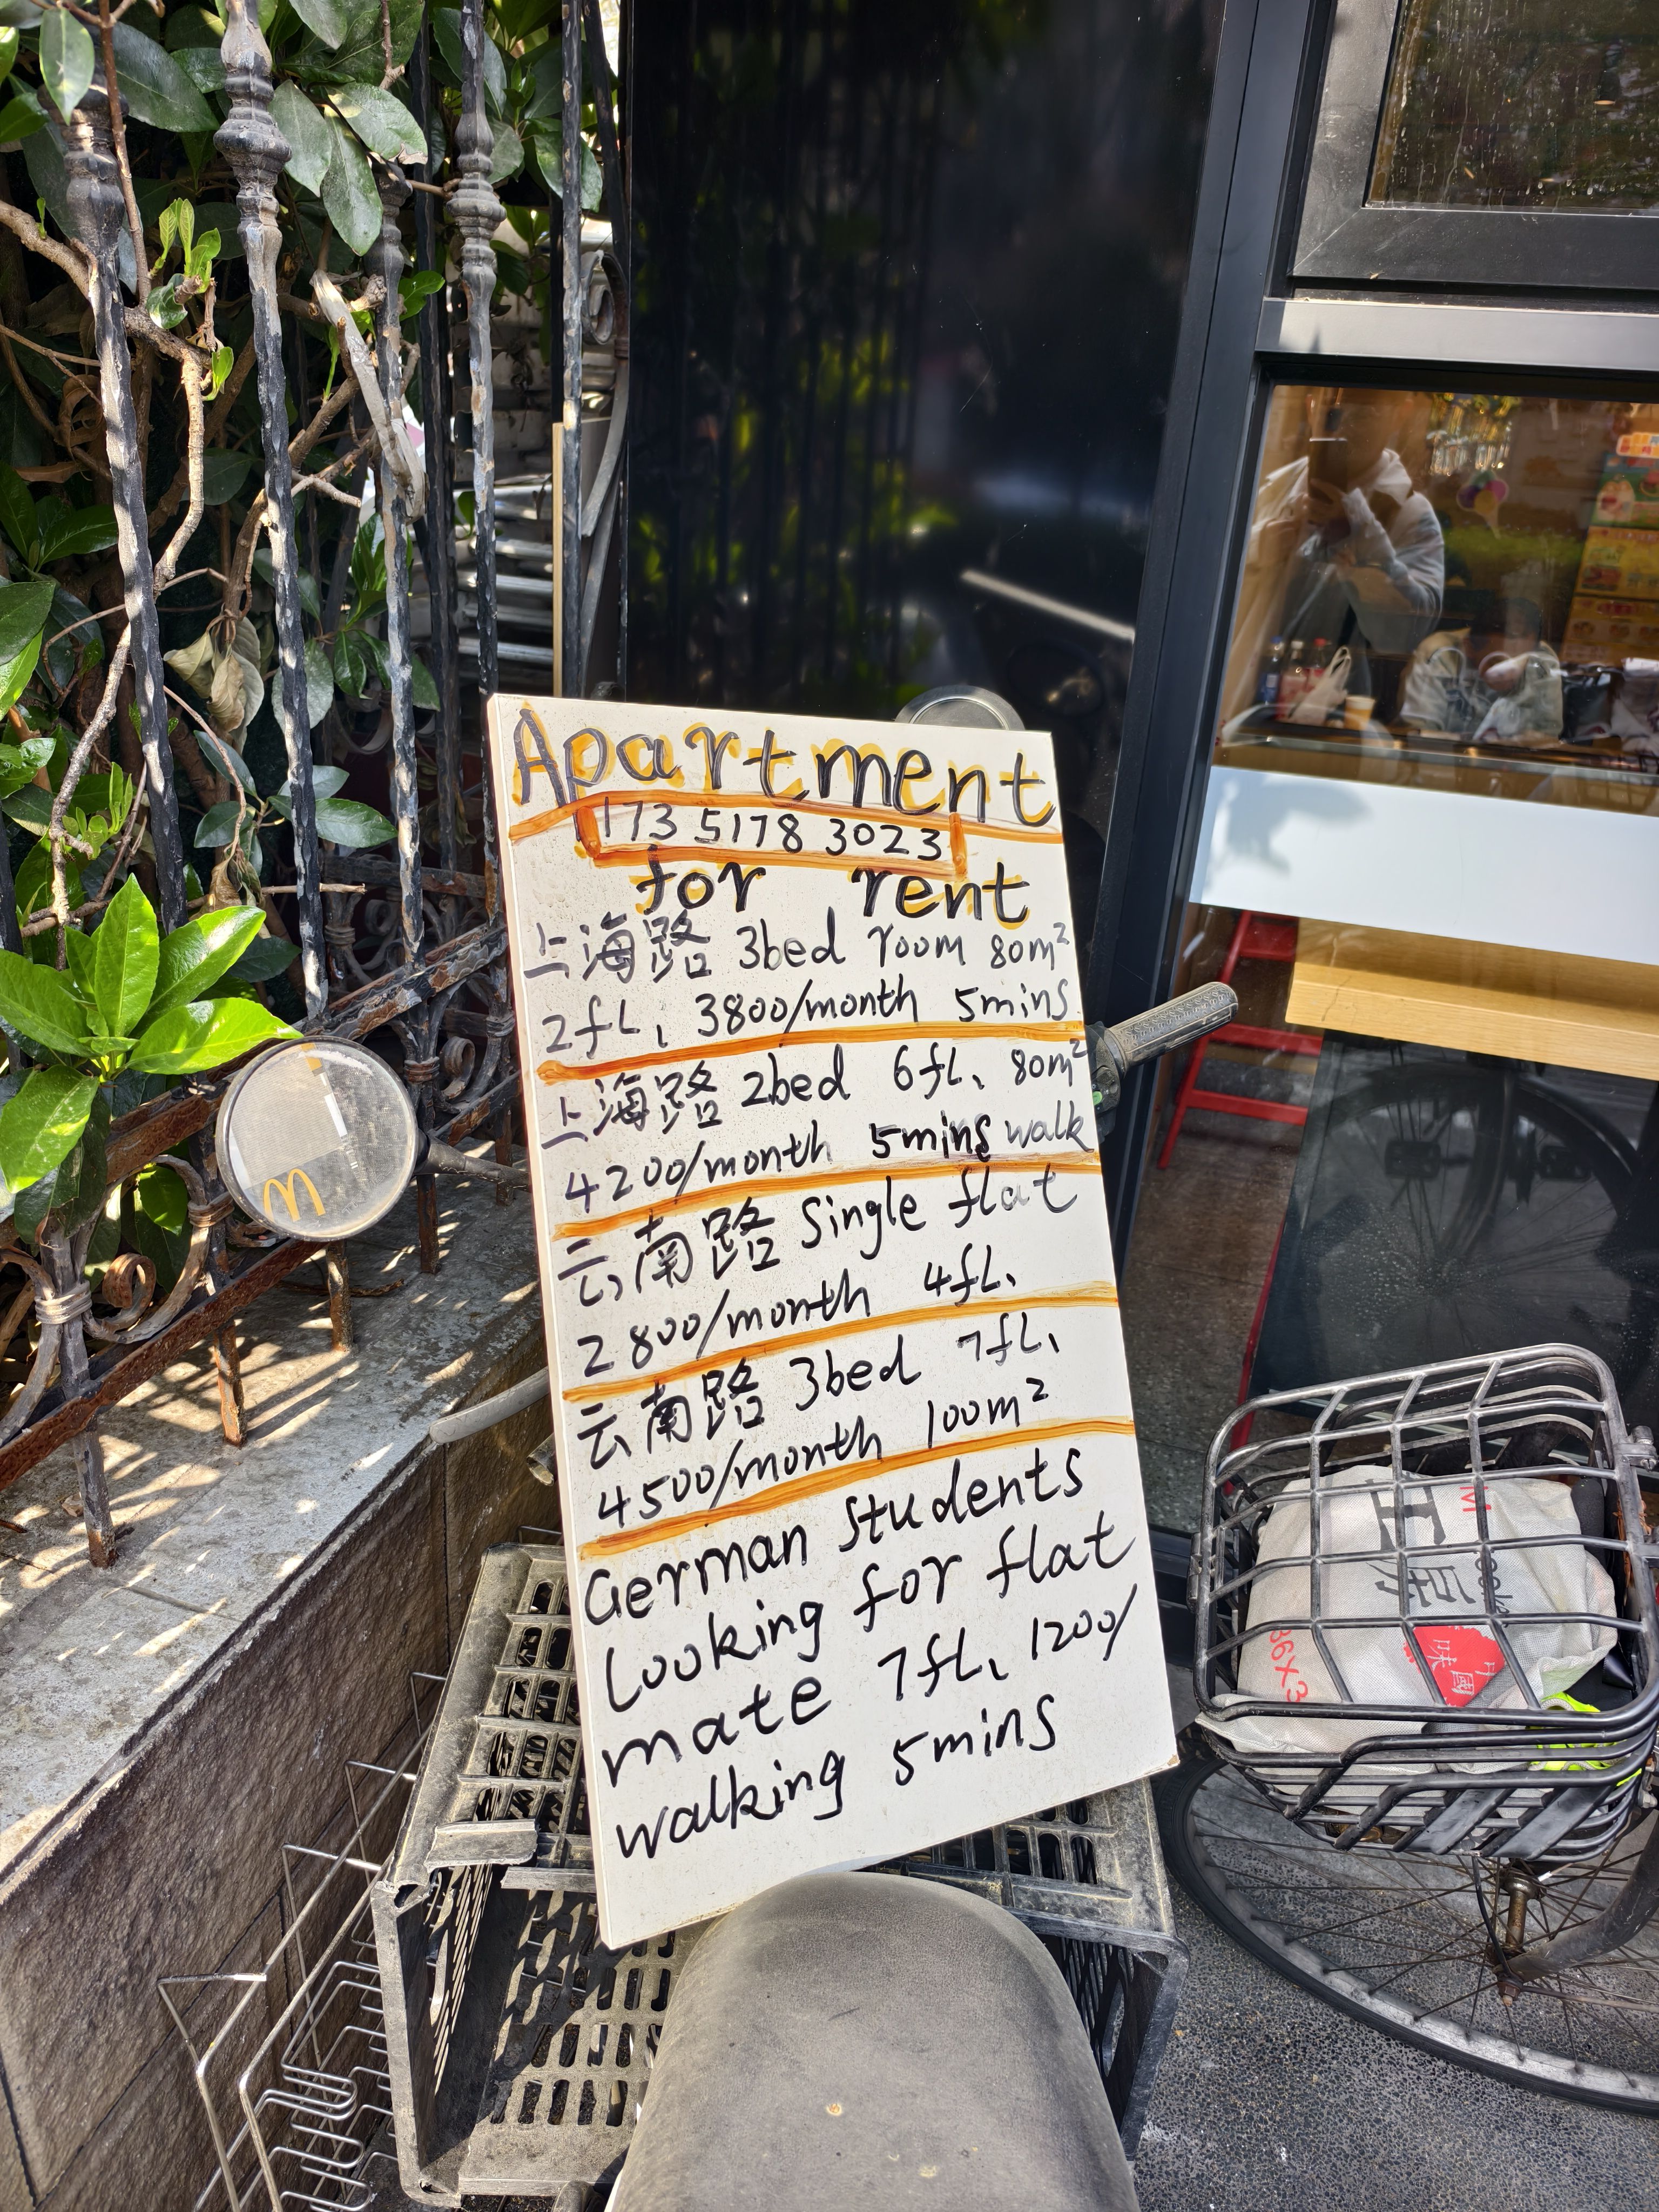 Apartment
173 5178 3023
for rent
上海路 3bed room 80m²
2fl、3800/month 5mins
上海路 2bed 6fl、80m²
4200/month 5mins walk
云南路 Single flat
2800/month 4fl、
云南路 3bed 7fl、
4500/month 100m²
German students
looking for flat
mate 7fl、1200/
walking 5mins